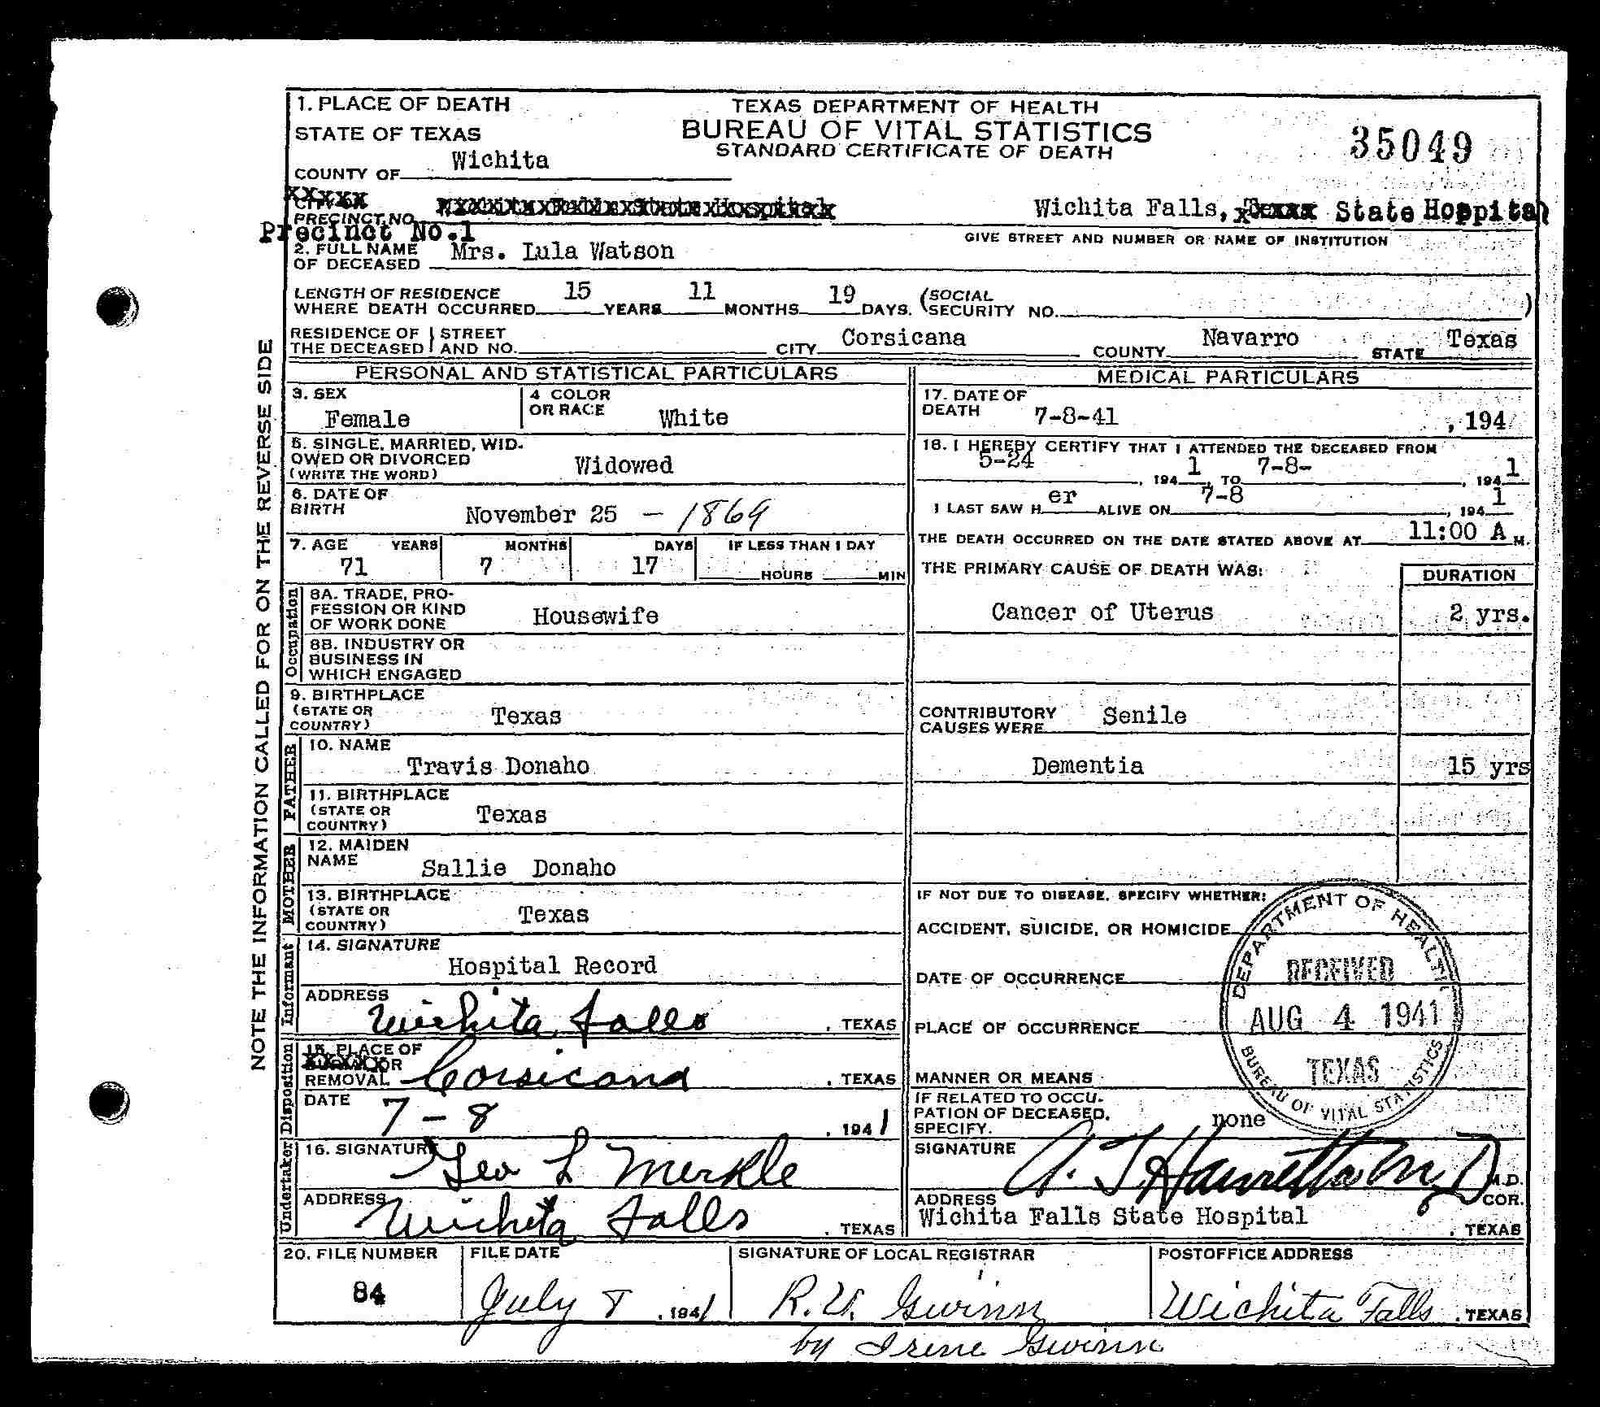 1. PLACE OF DEATH
STATE OF TEXAS
COUNTY OF Wichita
TEXAS DEPARTMENT OF HEALTH
BUREAU OF VITAL STATISTICS
STANDARD CERTIFICATE OF DEATH
35049
PRECINCT NO.
Precinct No.1
Wichita Falls, State Hospital
GIVE STREET AND NUMBER OR NAME OF INSTITUTION
2. FULL NAME OF DECEASED Mrs. Lula Watson
LENGTH OF RESIDENCE WHERE DEATH OCCURRED 15 YEARS 11 MONTHS 19 DAYS. (SOCIAL SECURITY NO. )
RESIDENCE OF THE DECEASED STREET AND NO. CITY Corsicana COUNTY Navarro STATE Texas
NOTE THE INFORMATION CALLED FOR ON THE REVERSE SIDE
PERSONAL AND STATISTICAL PARTICULARS
3. SEX Female
4 COLOR OR RACE White
5. SINGLE, MARRIED, WIDOWED OR DIVORCED (WRITE THE WORD) Widowed
6. DATE OF BIRTH November 25 - 1869
7. AGE YEARS MONTHS DAYS IF LESS THAN 1 DAY
71 7 17 HOURS MIN
Occupation
8A. TRADE, PROFESSION OR KIND OF WORK DONE Housewife
8B. INDUSTRY OR BUSINESS IN WHICH ENGAGED
9. BIRTHPLACE (STATE OR COUNTRY) Texas
FATHER
10. NAME Travis Donaho
11. BIRTHPLACE (STATE OR COUNTRY) Texas
MOTHER
12. MAIDEN NAME Sallie Donaho
13. BIRTHPLACE (STATE OR COUNTRY) Texas
Informant
14. SIGNATURE Hospital Record
ADDRESS Wichita Falls, TEXAS
Disposition
15. PLACE OF OR REMOVAL Corsicana, TEXAS
DATE 7-8, 1941
Undertaker
16. SIGNATURE Geo L Merkle
ADDRESS Wichita Falls, TEXAS
MEDICAL PARTICULARS
17. DATE OF DEATH 7-8-41, 194
18. I HEREBY CERTIFY THAT I ATTENDED THE DECEASED FROM
5-24, 1941, TO 7-8-, 1941
I LAST SAW Her ALIVE ON 7-8, 1941
THE DEATH OCCURRED ON THE DATE STATED ABOVE AT 11:00 A M.
THE PRIMARY CAUSE OF DEATH WAS: DURATION
Cancer of Uterus 2 yrs.
CONTRIBUTORY CAUSES WERE Senile
Dementia 15 yrs
IF NOT DUE TO DISEASE, SPECIFY WHETHER:
ACCIDENT, SUICIDE, OR HOMICIDE
DATE OF OCCURRENCE
PLACE OF OCCURRENCE
MANNER OR MEANS
DEPARTMENT OF HEALTH
RECEIVED
AUG 4 1941
TEXAS
BUREAU OF VITAL STATISTICS
IF RELATED TO OCCUPATION OF DECEASED, SPECIFY. none
SIGNATURE M.D.
ADDRESS COR.
Wichita Falls State Hospital, TEXAS
20. FILE NUMBER 84
FILE DATE July 8, 1941
SIGNATURE OF LOCAL REGISTRAR R.V. Gwinn
by Irene Gwinn
POSTOFFICE ADDRESS Wichita Falls, TEXAS